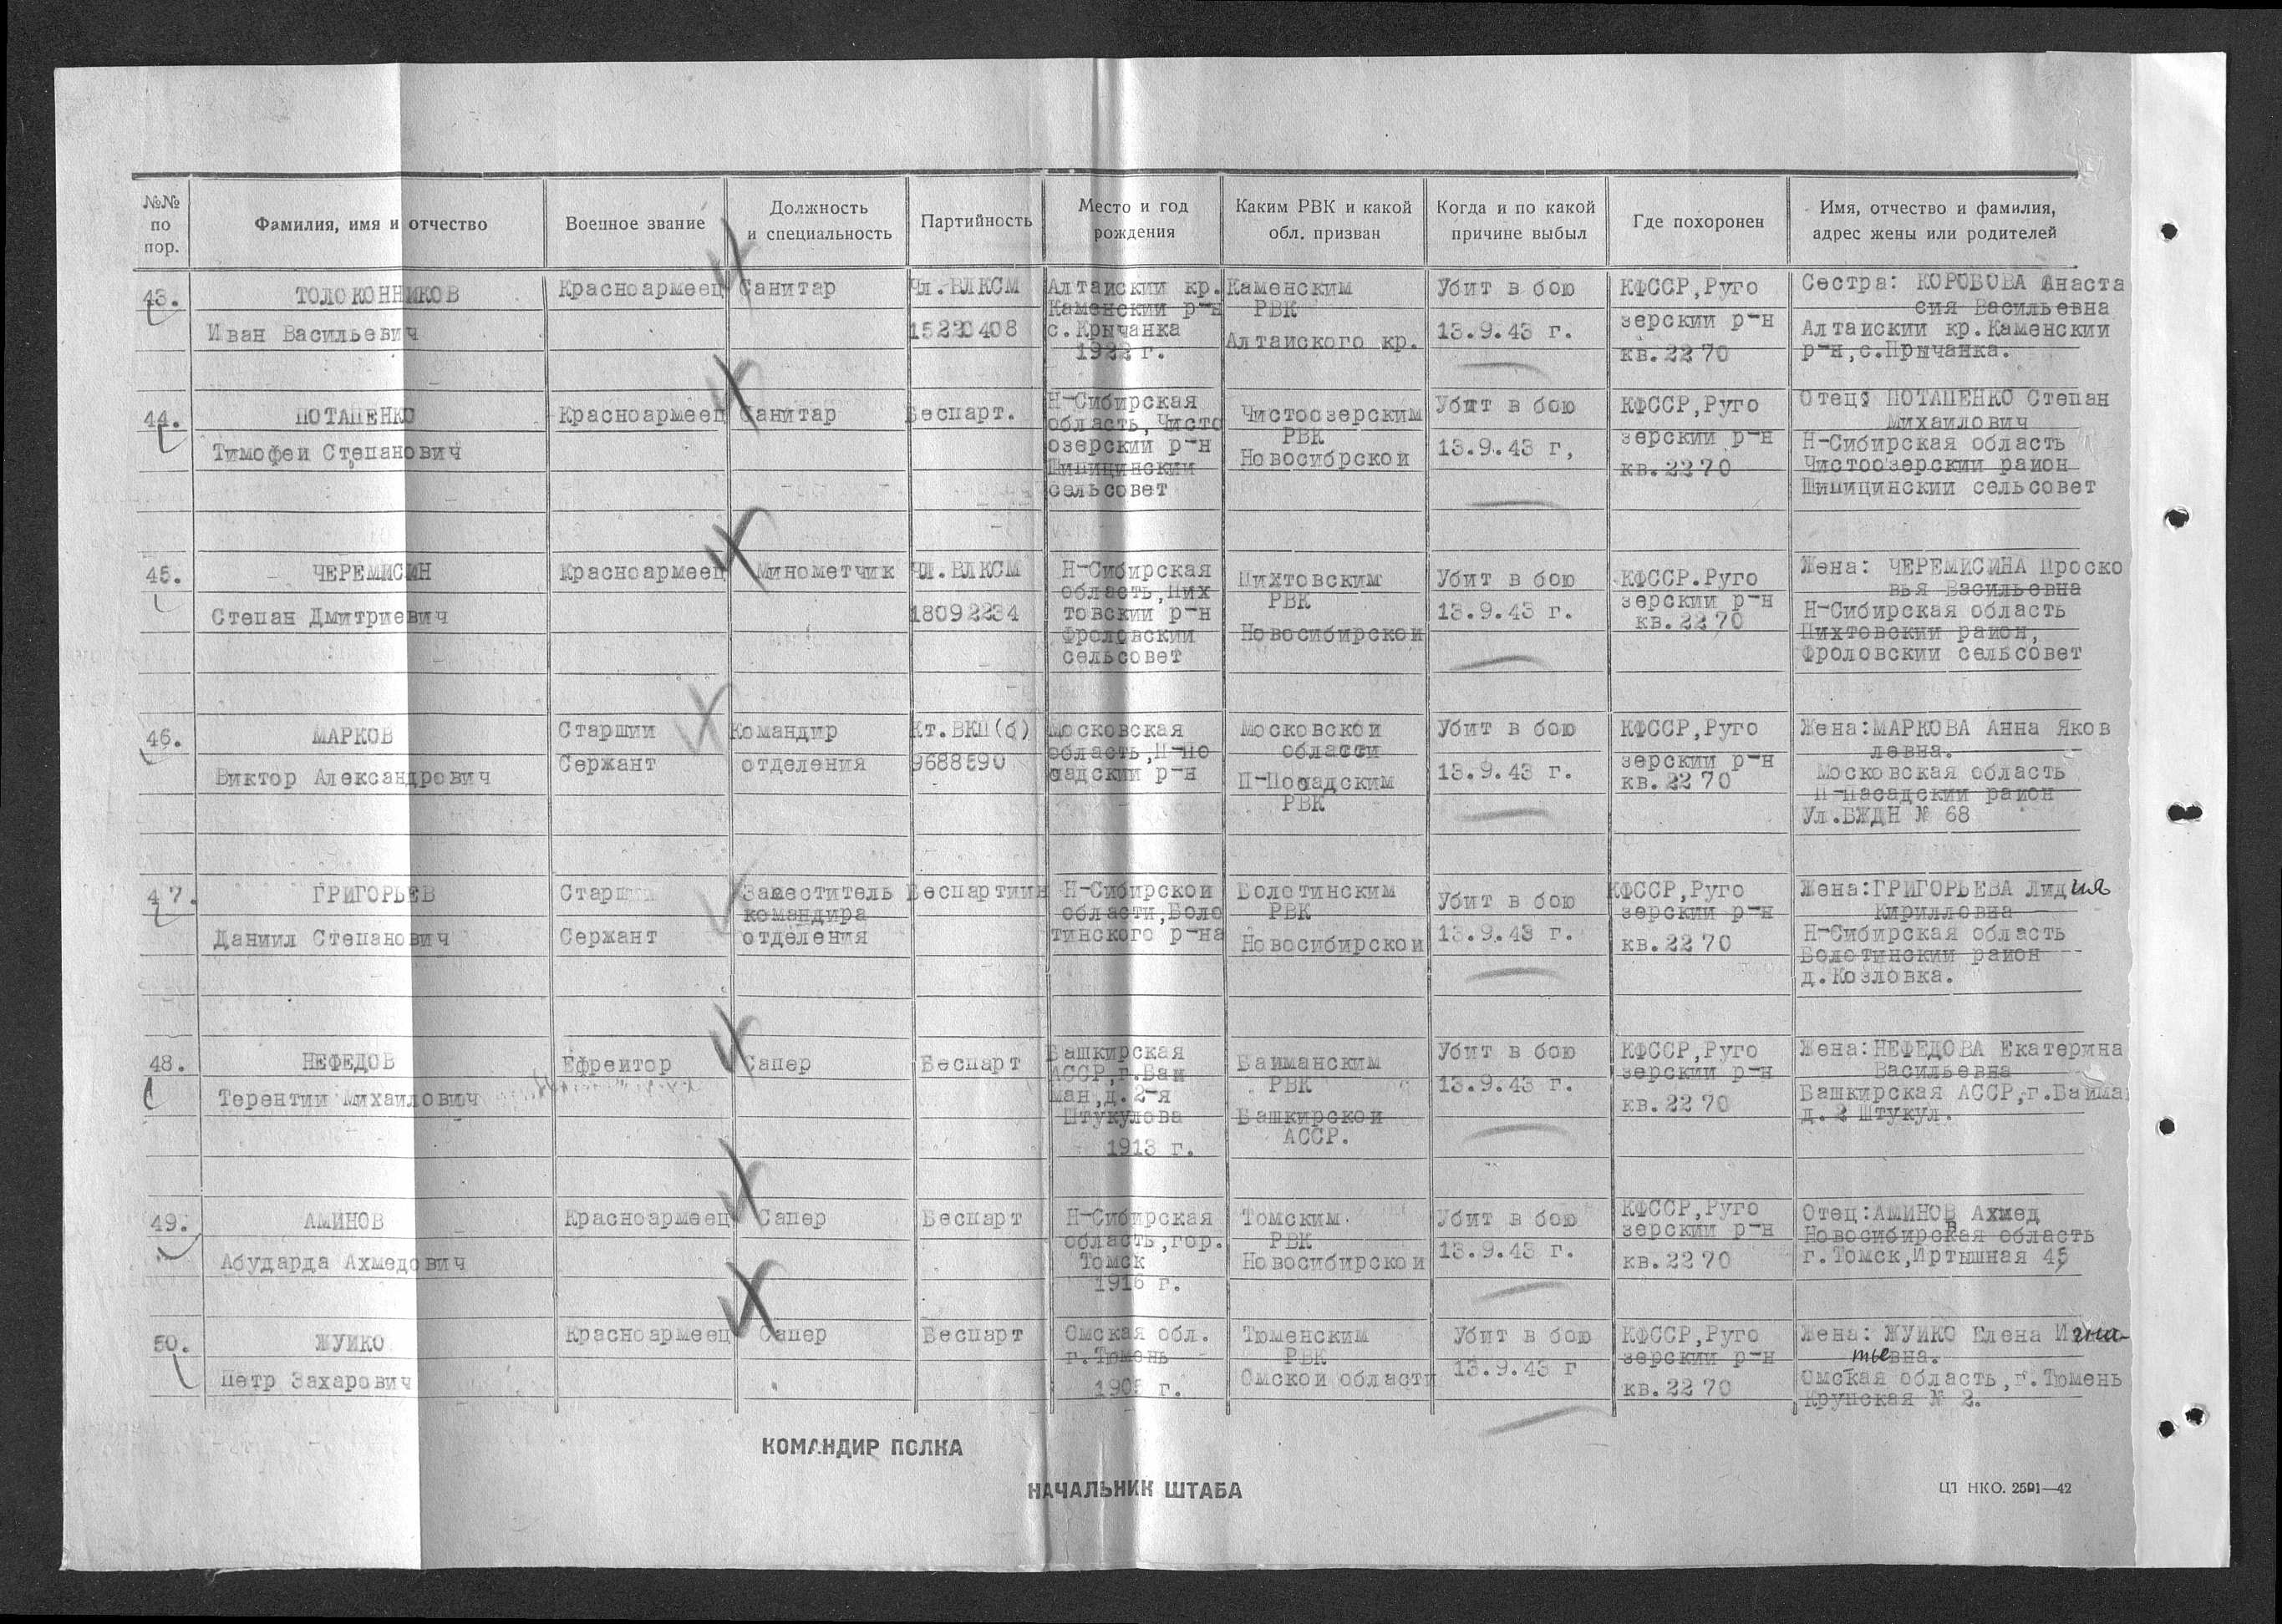 №№ по пор.
Фамилия, имя и отчество
Военное звание
Должность и специальность
Партийность
Место и год рождения
Каким РВК и какой обл. призван
Когда и по какой причине выбыл
Где похоронен
Имя, отчество и фамилия, адрес жены или родителей
43.
ТОЛОКОННИКОВ
Иван Васильевич
Красноармеец
Санитар
Чл.ВЛКСМ
15220408
Алтаискии кр.
Каменскии р-н
с.Крычанка
1922 г.
Каменским
РВК
Алтаиского кр.
Убит в бою
13.9.43 г.
КФССР,Руго
зерскии р-н
кв.2270
Сестра: КОРОБОВА Анаста
сия Васильевна
Алтаискии кр.Каменскии
р-н,с.Прычанка.
44.
ПОТАПЕНКО
Тимофеи Степанович
Красноармеец
Санитар
Беспарт.
Н-Сибирская
область,Чисто
озерскии р-н
Шипицинскии
сельсовет
Чистоозерским
РВК
Новосибрскои
Убит в бою
13.9.43 г,
КФССР,Руго
зерскии р-н
кв.2270
Отец: ПОТАПЕНКО Степан
Михаилович
Н-Сибирская область
Чистоозерскии раион
Шипицинскии сельсовет
45.
ЧЕРЕМИСИН
Степан Дмитриевич
Красноармеец
Минометчик
Чл.ВЛКСМ
18092234
Н-Сибирская
область,Пих
товскии р-н
Фроловскии
сельсовет
Пихтовским
РВК
Новосибирскои
Убит в бою
13.9.43 г.
КФССР.Руго
зерскии р-н
кв.2270
Жена: ЧЕРЕМИСИНА Проско
вья Васильевна
Н-Сибирская область
Пихтовскии раион,
Фроловскии сельсовет
46.
МАРКОВ
Виктор Александрович
Старшии
Сержант
Командир
отделения
Кт.ВКП(б)
9688590
Московская
область,П-По
садскии р-н
Московскои
области
П-Посадским
РВК
Убит в бою
13.9.43 г.
КФССР,Руго
зерскии р-н
кв.2270
Жена:МАРКОВА Анна Яков
левна.
Московская область
П-Пасадскии раион
Ул.БЖДН № 68
47.
ГРИГОРЬЕВ
Даниил Степанович
Старшии
Сержант
Заместитель
командира
отделения
Беспартиин
Н-Сибирскои
области,Боло
тинского р-на
Болотинским
РВК
Новосибирскои
Убит в бою
13.9.43 г.
КФССР,Руго
зерскии р-н
кв.2270
Жена:ГРИГОРЬЕВА Лидия
Кирилловна
Н-Сибирская область
Болотинскии раион
д.Козловка.
48.
НЕФЕДОВ
Терентии Михаилович
Ефреитор
Сапер
Беспарт
Башкирская
АССР,г.Баи
ман,д.2-я
Штукулова
1913 г.
Баиманским
РВК
Башкирскои
АССР.
Убит в бою
13.9.43 г.
КФССР,Руго
зерскии р-н
кв.2270
Жена:НЕФЕДОВА Екатерина
Васильевна
Башкирская АССР,г.Баима
д.2 Штукул.
49.
АМИНОВ
Абударда Ахмедович
Красноармеец
Сапер
Беспарт
Н-Сибирская
область,гор.
Томск
1916 г.
Томским
РВК
Новосибирскои
Убит в бою
13.9.43 г.
КФССР,Руго
зерскии р-н
кв.2270
Отец:АМИНОВ Ахмед
Новосибирская область
г.Томск,Иртышная 45
50.
ЖУИКО
Петр Захарович
Красноармеец
Сапер
Беспарт
Омская обл.
г.Тюмень
г.
Тюменским
РВК
Омскои области
Убит в бою
13.9.43 г
КФССР,Руго
зерскии р-н
кв.2270
Жена: ЖУИКО Елена Игна-
тьевна.
Омская область,г.Тюмень
Крупская № 2.
КОМАНДИР ПОЛКА
НАЧАЛЬНИК ШТАБА
ЦТ НКО. 2591—42